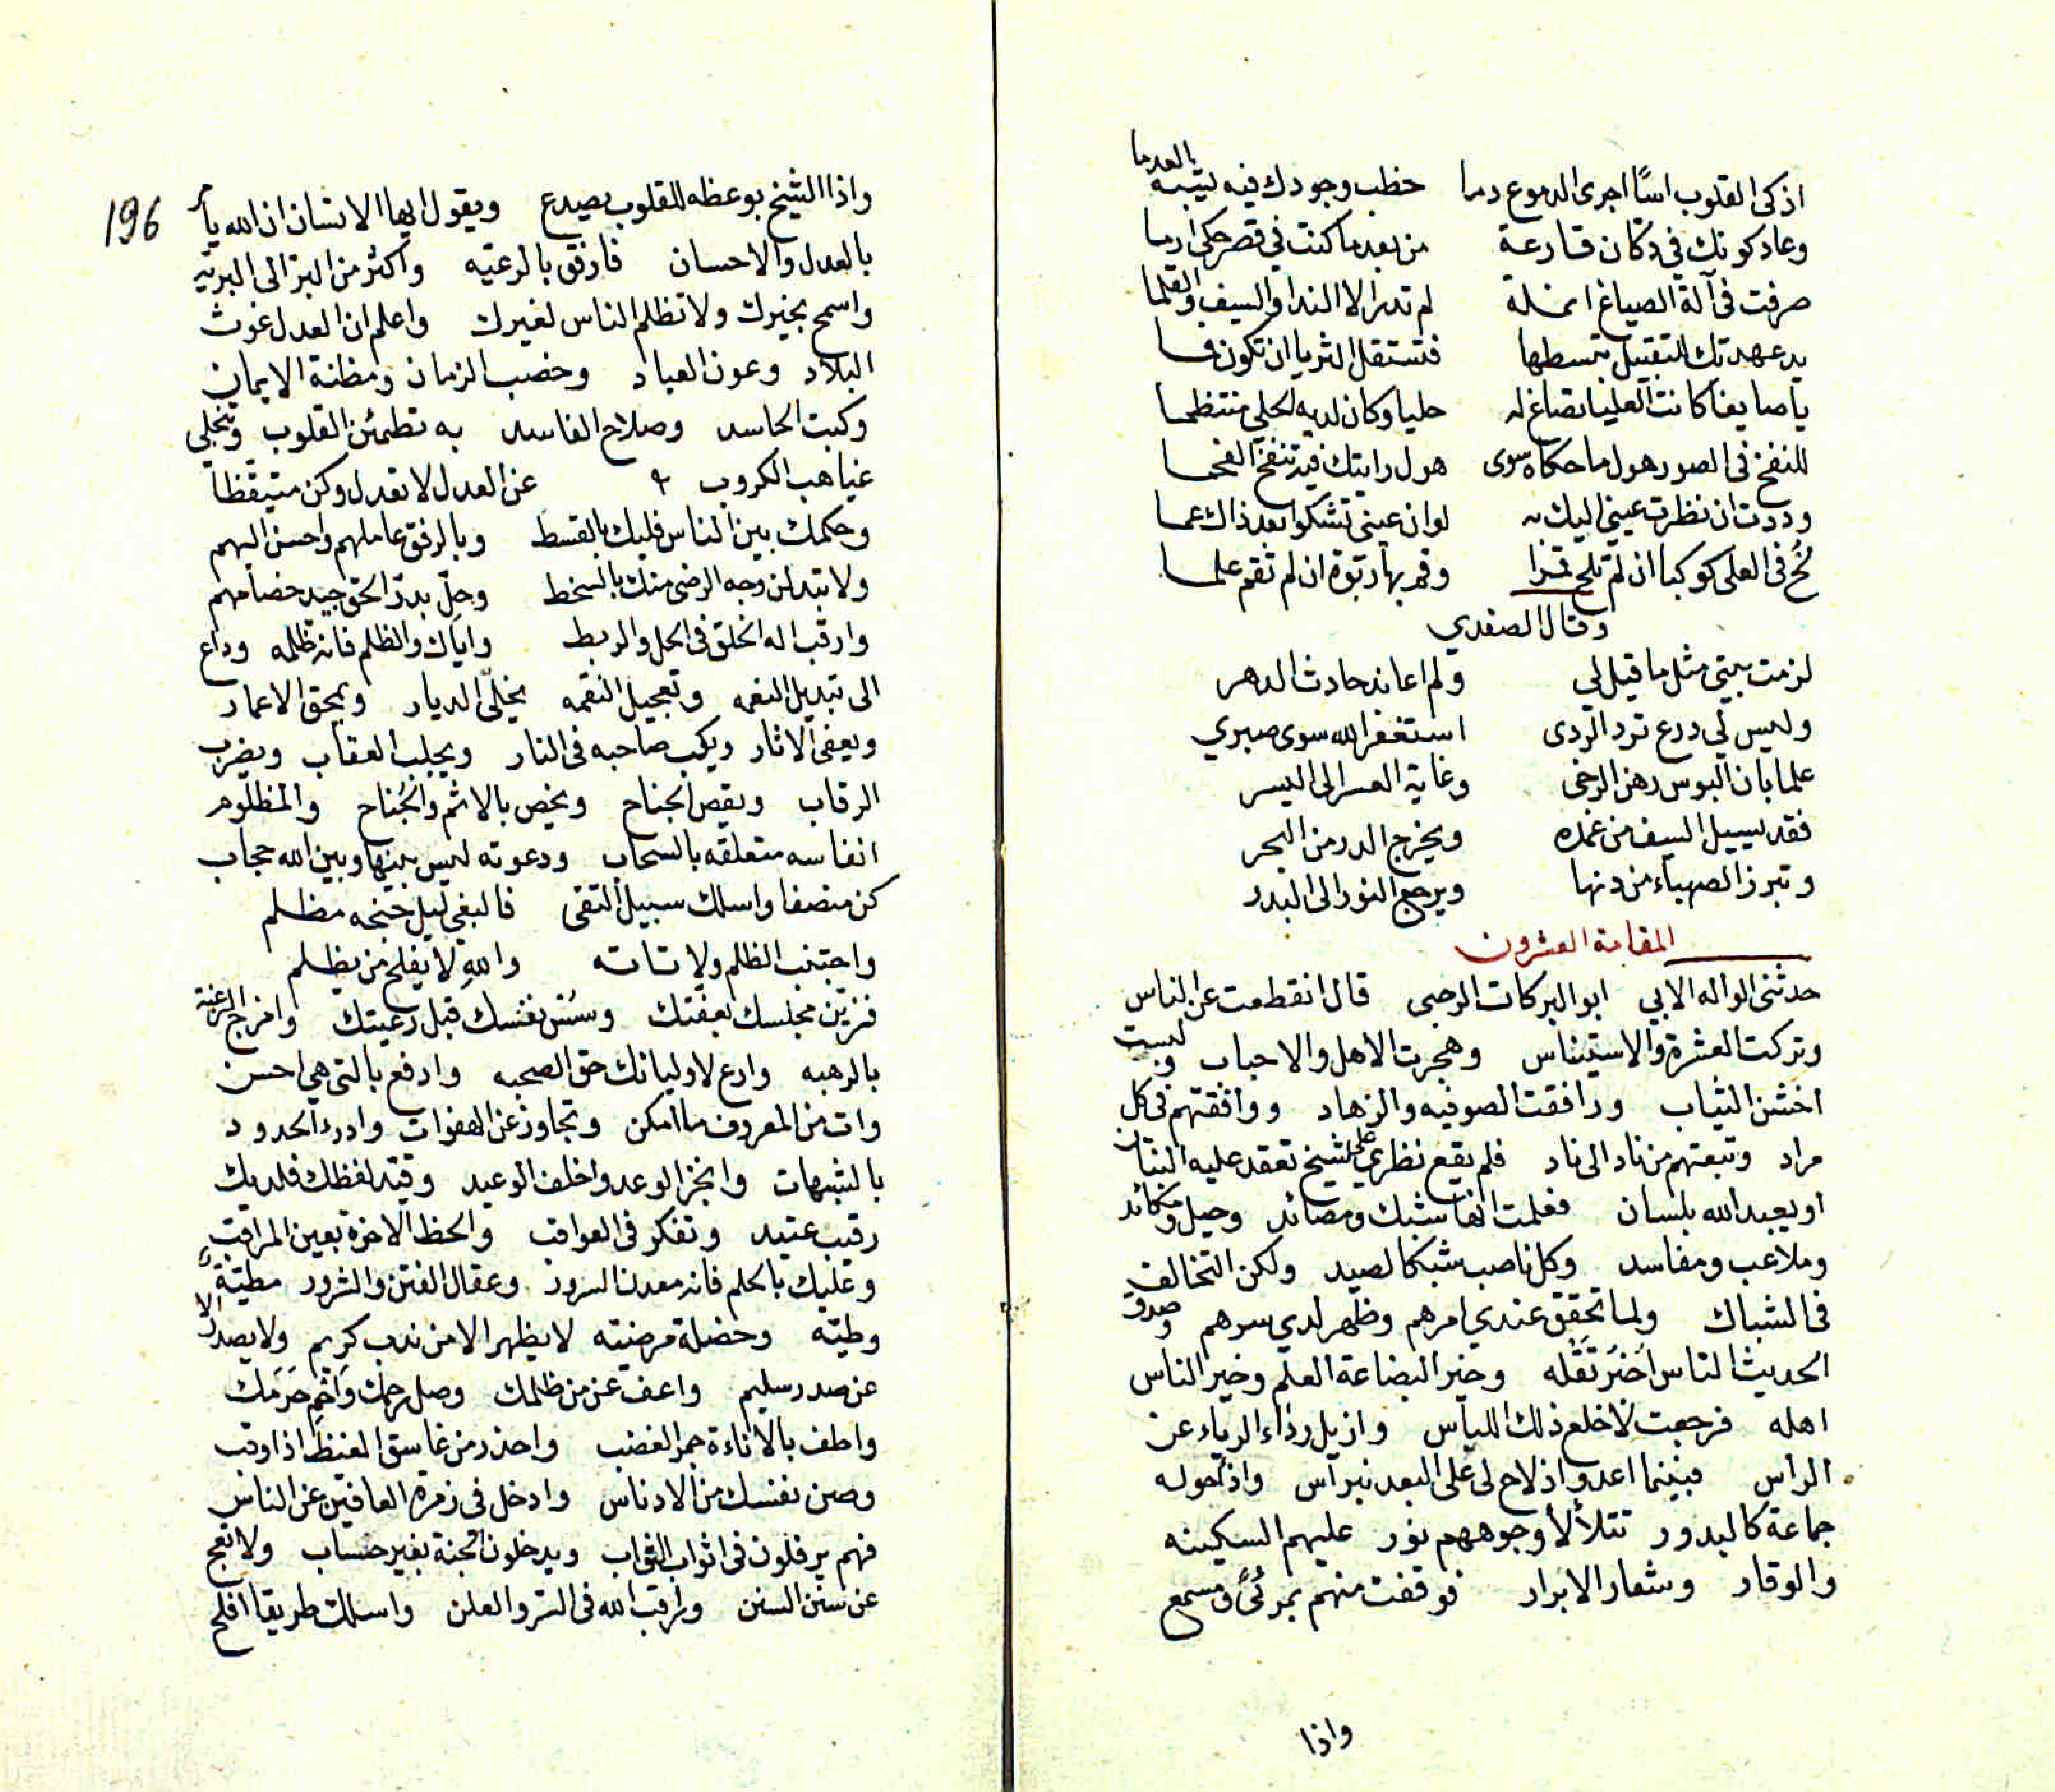 اذكى القلوب اسًا اجرى الدموع دما خطب وجودك فيه يشبه العدما
وعاد كونك في دكان قارعة من بعد ما كنت في قصر حكى ارما
صرفت في آلة الصياغ انملة لم تدر الا الندا والسيف والقلما
يد عهدتك للتقبيل تبسطها فتستقل الثريا ان تكون فما
يا صايغا كانت العليا تصاغ له حليا وكان لديه الحلي منتظما
للنفخ في الصور هول ما حكاه سوى هول رايتك فيه تنفخ الفحما
وددت ان نظرت عيني اليك به لو ان عيني تشكو بعد ذاك عما
لُح في العلى كوكبا ان لم تلح قمرا وقم بها ربوة ان لم تقم علما
وقال الصفدي
لزمت بيتي مثل ما قيل لي ولم اعاند حادث الدهر
وليس لي درع ترد الردى استغفر الله سوى صبري
علما بان البوس رهن الرخى وغاية العسر الى اليسر
فقد يسيل السيف من غمده ويخرج الدر من البحر
وتبرز الصهباء من دنها ويرجع النور الى البدر
المقامة العشرون
حدثني الواله الابي ابو البركات الرحبي قال انقطعت عن الناس
وتركت العشرة والاستيناس وهجرت الاهل والاحباب ولبست
اخشن الثياب ورافقت الصوفيه والزهاد ووافقتهم في كل
مراد وتبعتهم من ناد الى ناد فلم يقع نظري على شيخ تعقد عليه البنان
او يعبد الله بلسان فعلمت انها شبك ومصائد وحيل ومكائد
وملاعب ومفاسد وكل ناصب شبكا لصيد ولكن التخالف
في الشباك ولما تحقق عندي امرهم وظهر لدي سرهم وصدق
الحديث الناس اخبُر تَقْله وخير البضاعة العلم وخير الناس
اهله فرجعت لاخلع ذلك اللباس وازيل رداء الرياء عن
الراس فبينما اعدو اذ لاح لي على البعد نبراس واذ حوله
جماعة كالبدور تتلألأ وجوههم نور عليهم السكينه
والوقار وشعار الابرار فوقفت منهم بمرئىً ومسمع
واذا
196
واذا الشيخ بوعظه للقلوب يصدع ويقول ايها الانسان ان الله يأمر
بالعدل والاحسان فارفق بالرعيه واكثر من البر الى البريّه
واسمح بخيرك ولا تظلم الناس لغيرك واعلم ان العدل غوث
البلاد وعون العباد وخصب الزمان ومظنة الايمان
وكبت الحاسد وصلاح الفاسد به تطمئن القلوب وتنجلي
غياهب الكروب عن العدل لا تعدل وكن متيقظا
وحكمك بين الناس فليك بالقسط وبالرفق عاملهم واحسن اليهم
ولا تبدلن وجه الرضى منك بالسخط وحلّ بدرّ الحق جيد خصامهم
وارقب اله الخلق في الحل والربط واياك والظلم فانه ظلمه وداع
الى تبديل النعمه وتعجيل النقمه يخلّي الديار ويمحق الاعمار
ويعفي الاثار ويكب صاحبه في النار ويجلب العقاب ويضرب
الرقاب ويقص الجناح ويخص بالاثم والجُناح والمظلوم
انفاسه متعلقه بالسحاب ودعوته ليس بينها وبين الله حجاب
كن منصفا واسلك سبيل التقى فالبغي ليل جنحه مظلم
واجتنب الظلم ولا تاته واللهِ لا يفلح من يظلم
فزيّن مجلسك بعفتك وسُسْ نفسك قبل رعيتك وامزج الرغبة
بالرهبه وارع لاوليائك حق الصحبه وادفع بالتي هي احسن
وات من المعروف ما امكن وتجاوز عن الهفوات وادرء الحدود
بالشبهات وانجز الوعد واخلف الوعيد وقيّد لفظك فلديك
رقيب عتيد وتفكر في العواقب والحظ الاخرة بعين المراقب
وعليك بالحلم فانه معدن السرور وعقال الفتن والشرور مطيّة
وطيّه وخصلة مرضيّه لا يظهر الا من ندب كريم ولا يصدر الا
عن صدر سليم واعف عن من ظلمك وصل رحمك وَاحْم حَرَمك
واطف بالاناءة جمر الغضب واحذر من غاسق الغيظ اذا وقب
وصن نفسك من الادناس وادخل في زمرة العافين عن الناس
فهم يرفلون في اثواب الثواب ويدخلون الجنة بغير حساب ولا تعج
عن سنن السنن وراقب الله في السر والعلن واسلك طريقا افلح